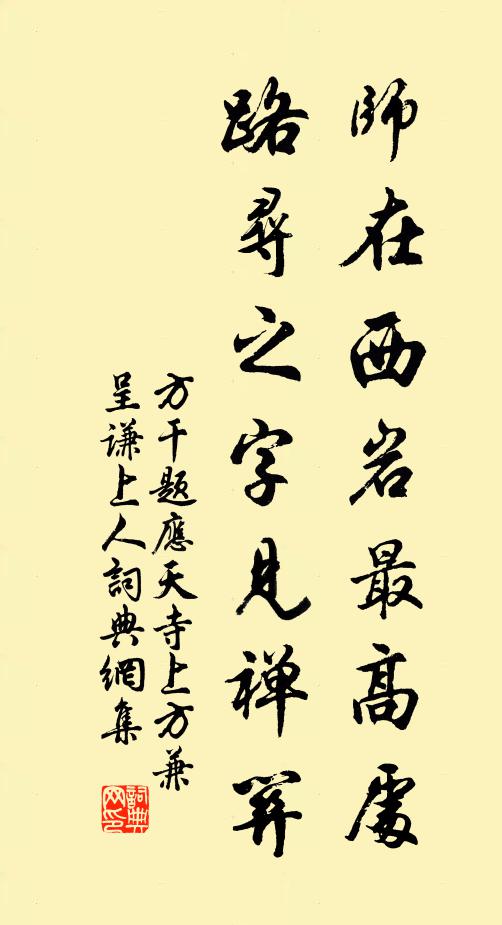 師在西岩最高處
路尋之字見禅關
方干題應天寺上方兼
呈谦上人詞典網集
詞典
网印